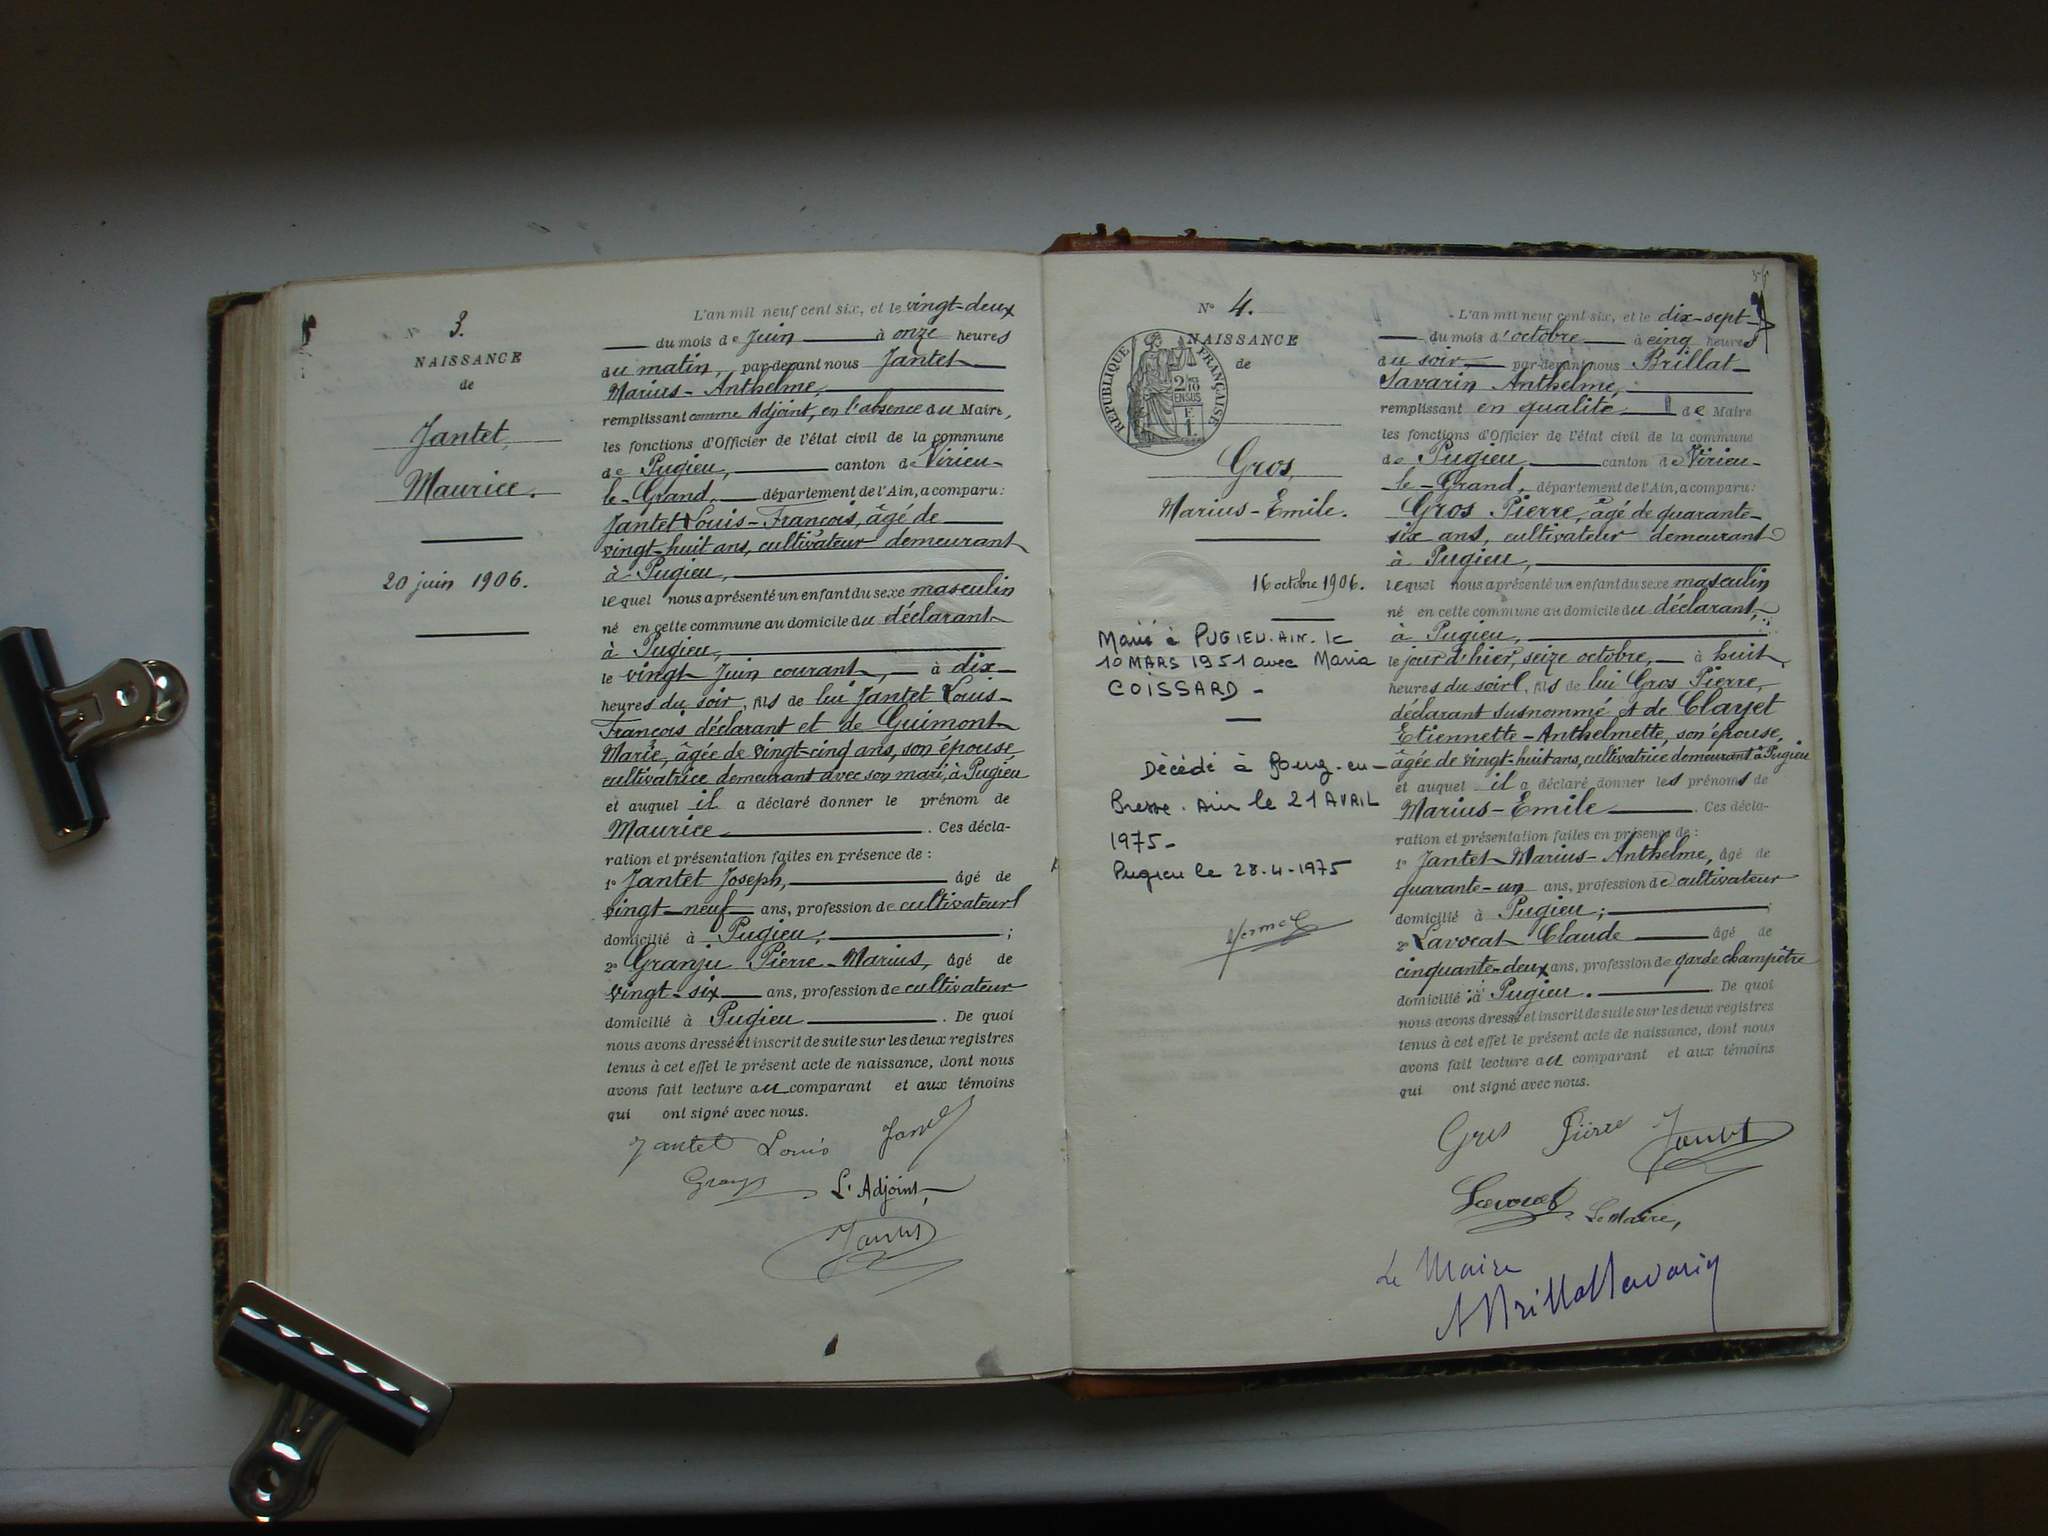 N° 3.
NAISSANCE
de
Jantet,
Maurice.
20 juin 1906.
L'an mil neuf cent six, et le vingt-deux
du mois de Juin à onze heures
du matin, par-devant nous Jantet
Marius-Anthelme,
remplissant comme Adjoint, en l'absence du Maire,
les fonctions d'Officier de l'état civil de la commune
de Pugieu, canton de Virieu-
le-Grand, département de l'Ain, a comparu:
Jantet Louis-François, âgé de
vingt-huit ans, cultivateur demeurant
à Pugieu,
lequel nous a présenté un enfant du sexe masculin
né en cette commune au domicile du déclarant
à Pugieu,
le vingt Juin courant, à dix
heures du soir, fils de lui Jantet Louis-
François déclarant et de Guimont
Marie, âgée de vingt-cinq ans, son épouse
cultivatrice demeurant avec son mari, à Pugieu
et auquel il a déclaré donner le prénom de
Maurice. Ces décla-
ration et présentation faites en présence de :
1° Jantet Joseph, âgé de
vingt-neuf ans, profession de cultivateur
domicilié à Pugieu, ;
2° Granju Pierre-Marius, âgé de
vingt-six ans, profession de cultivateur
domicilié à Pugieu. De quoi
nous avons dressé et inscrit de suite sur les deux registres
tenus à cet effet le présent acte de naissance, dont nous
avons fait lecture au comparant et aux témoins
qui ont signé avec nous.
Jantet Louis
L'Adjoint,
Jantet
N° 4.
NAISSANCE
de
RÉPUBLIQUE FRANÇAISE
Gros,
Marius-Emile.
16 octobre 1906.
Marié à PUGIEU. AIN. le
10 MARS 1951 avec Maria
COISSARD -
Décédé à Bourg-en-
Bresse. Ain le 21 AVRIL
1975-
Pugieu le 28-4-1975
L'an mil neuf cent six, et le dix-sept
du mois d'octobre à cinq heures
du soir par-devant nous Brillat-
Savarin Anthelme,
remplissant en qualité de Maire
les fonctions d'Officier de l'état civil de la commune
de Pugieu, canton de Virieu-
le-Grand, département de l'Ain, a comparu:
Gros Pierre, âgé de quarante-
six ans, cultivateur demeurant
à Pugieu,
lequel nous a présenté un enfant du sexe masculin
né en cette commune au domicile du déclarant,
à Pugieu,
le jour d'hier, seize octobre, à huit
heures du soir, fils de lui Gros Pierre,
déclarant susnommé et de Clayet
Etiennette-Anthelmette, son épouse,
âgée de vingt-huit ans, cultivatrice demeurant à Pugieu
et auquel il a déclaré donner les prénoms de
Marius-Emile. Ces décla-
ration et présentation faites en présence de :
1° Jantet Marius-Anthelme, âgé de
quarante-un ans, profession de cultivateur
domicilié à Pugieu;
2° Lavocat Claude âgé de
cinquante-deux ans, profession de garde champêtre
domicilié à Pugieu. De quoi
nous avons dressé et inscrit de suite sur les deux registres
tenus à cet effet le présent acte de naissance, dont nous
avons fait lecture au comparant et aux témoins
qui ont signé avec nous.
Gros Pierre Jantet
Lavocat Le Maire,
Le Maire
A Brillat Savarin